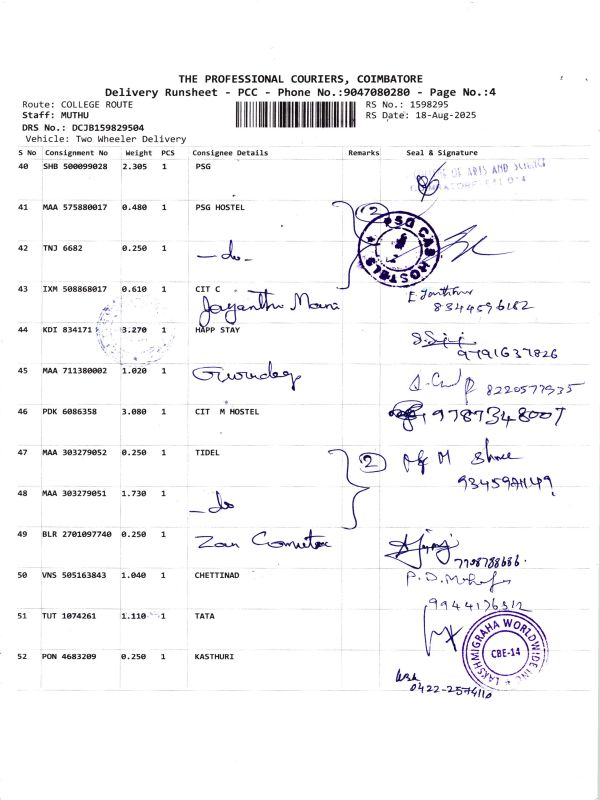 THE PROFESSIONAL COURIERS, COIMBATORE
Delivery Runsheet - PCC - Phone No.:9047080280 - Page No.:4
Route: COLLEGE ROUTE RS No.: 1598295
Staff: MUTHU RS Date: 18-Aug-2025
DRS No.: DCJB159829504
Vehicle: Two Wheeler Delivery
S No Consignment No Weight PCS Consignee Details Remarks Seal & Signature
40 SHB 500099028 2.305 1 PSG
OF ARTS AND SCIENCE
41 MAA 575880017 0.480 1 PSG HOSTEL 2
PSG CAS HOSTELS
42 TNJ 6682 0.250 1 -do-
43 IXM 508868017 0.610 1 CIT C
Jayanthi Mani
8344696182
44 KDI 834171 3.270 1 HAPP STAY
9791637826
45 MAA 711380002 1.020 1
8220577935
46 PDK 6086358 3.080 1 CIT M HOSTEL 9787348007
47 MAA 303279052 0.250 1 TIDEL 2
48 MAA 303279051 1.730 1 -do
49 BLR 2701097740 0.250 1 Zan
7708788686
50 VNS 505163843 1.040 1 CHETTINAD
9944176312
51 TUT 1074261 1.110 1 TATA
LAKSHMIGRAHA WORLDWIDE INC
CBE-14
52 PON 4683209 0.250 1 KASTHURI
0422-2574110